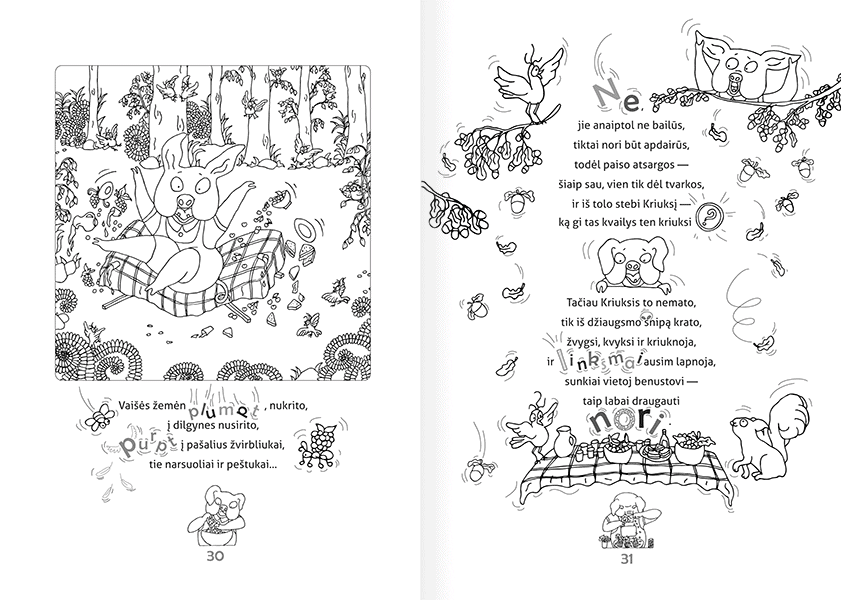 Vaišės žemėn plumpt, nukrito,
į dilgynes nusirito,
purpt į pašalius žvirbliukai,
tie narsuoliai ir peštukai...
30
Ne,
jie anaiptol ne bailūs,
tiktai nori būt apdairūs,
todėl paiso atsargos —
šiaip sau, vien tik dėl tvarkos,
ir iš tolo stebi Kriuksį —
ką gi tas kvailys ten kriuksi
Tačiau Kriuksis to nemato,
tik iš džiaugsmo šnipą krato,
žvygsi, kvyksi ir kriuknoja,
ir linksmai ausim lapnoja,
sunkiai vietoj benustovi —
taip labai draugauti
nori.
31